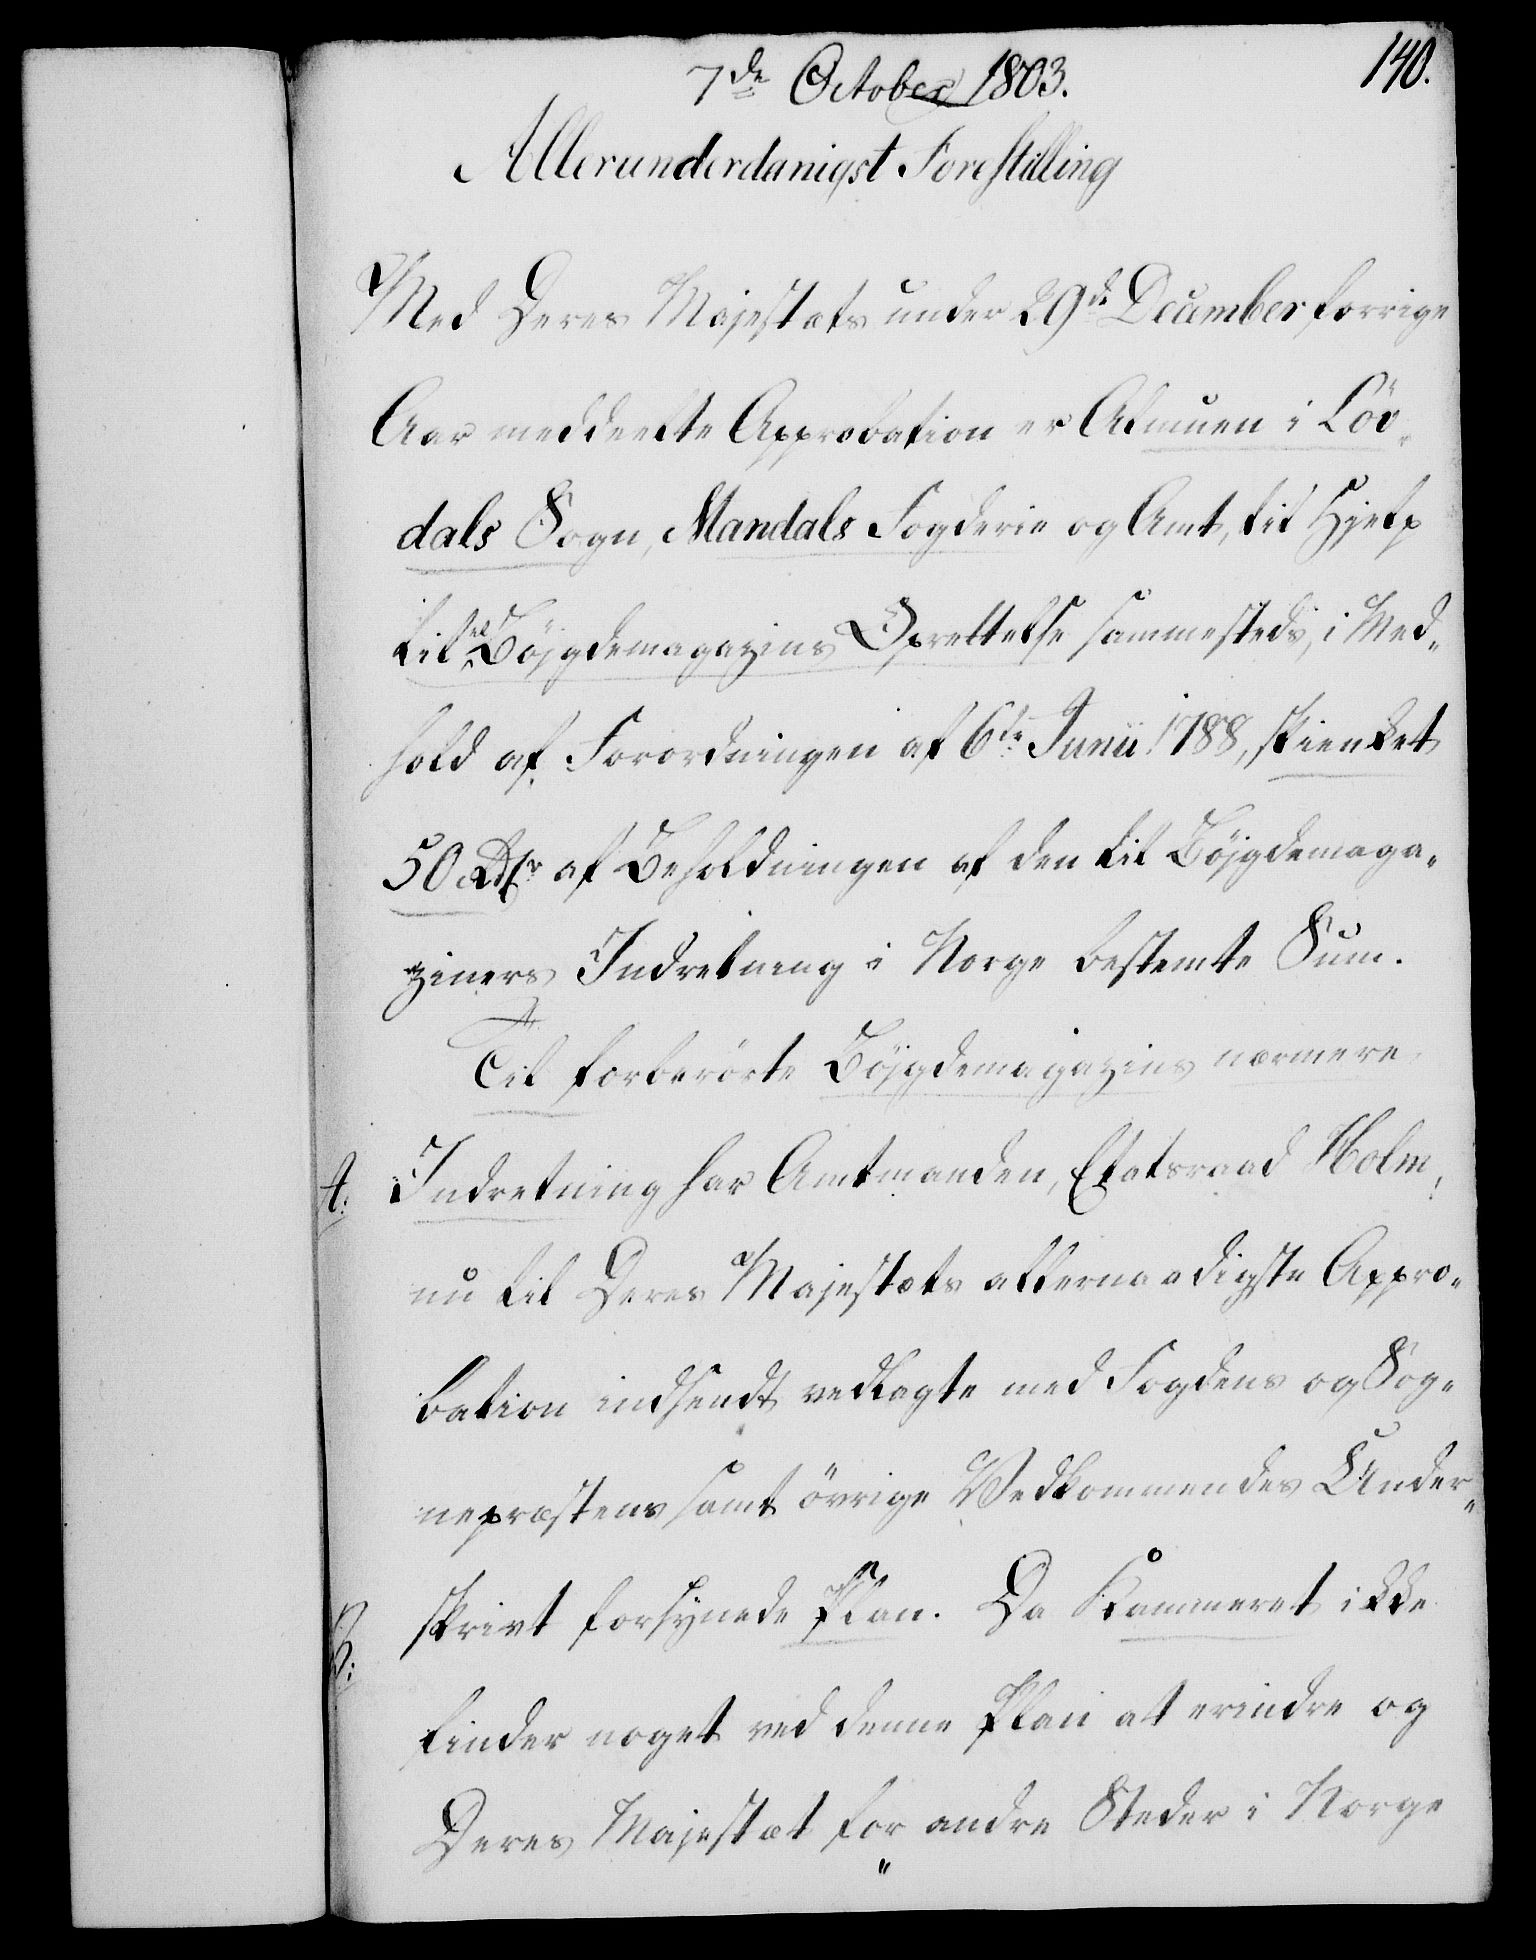 140.
7de October 1803.
Allerunderdanigst Forestilling
Med Deres Majestæts under 29de December forrige
Aar meddeelte Approbation er Almuen i Löv-
dals Sogn, Mandals Fogderie og Amt, til Hjelp
til et Böjgdemagazins Oprettelse sammesteds, i Med-
hold af Forordningen af 6te Junii 1788, skienket
50 Rdlr af Beholdningen af den til Böjgdemaga-
ziners Indretning i Norge bestemte Sum.
Til forberörte Böjgdemagazins nærmere
A: Indretning har Amtmanden, Etatsraad Holm,
nu til Deres Majestæts allernaadigste Appro-
bation indsendt vedlagte med Fogdens og Sog-
nepræstens samt övrige Vedkommendes Under-
B: skrivt forsynede Plan. Da Kammeret ikke
finder noget ved denne Plan at erindre og
Deres Majestæt for andre Steder i Norge